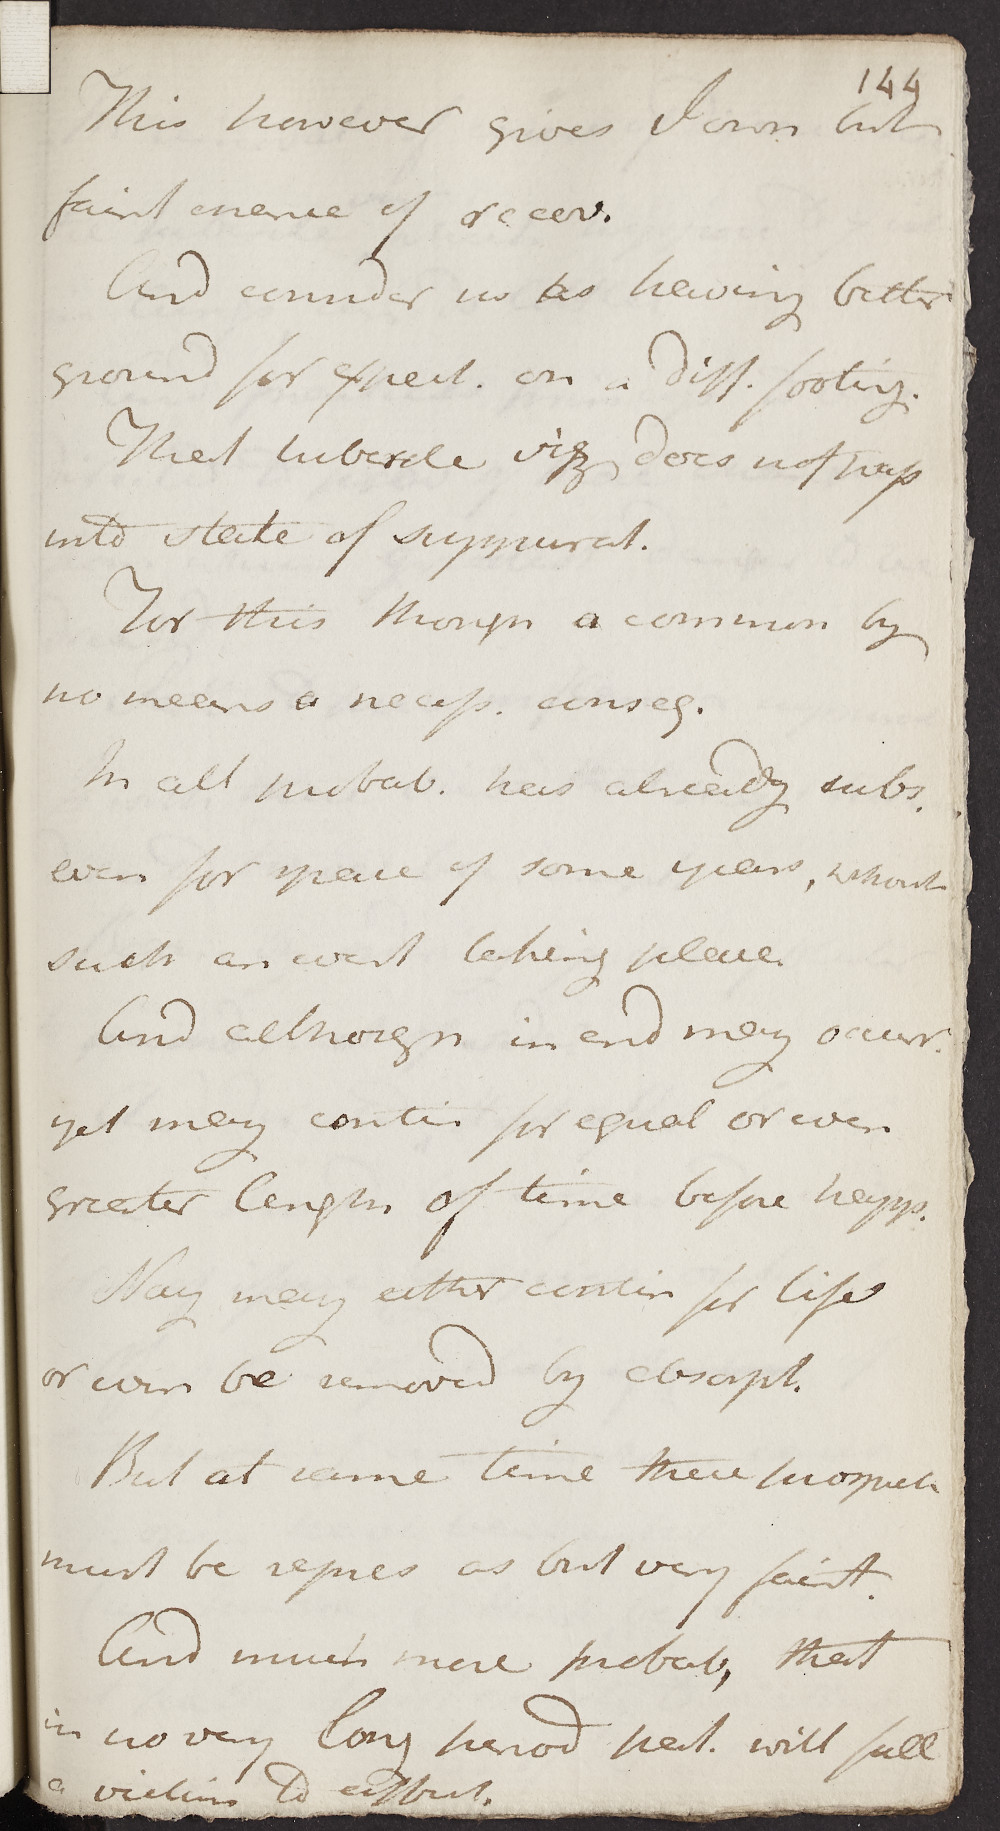 144
This however gives I own but
faint chance of recov.
And consider us as having better
ground for expect. on a diff. footing.
That tubercle viz does not pass
into state of suppurat.
For this though a common by
no means a necess. conseq.
In all probab. has already subs.
even for space of some years, without
such an event taking place
And although in end may occur.
yet may contin for equal or even
greater length of time before happs.
Nay may either contin for life
or even be removed by absorpt.
But at same time these prospects
must be repres as but very faint.
And much more probab, that
in no very long period pat. will fall
a victim to affect.